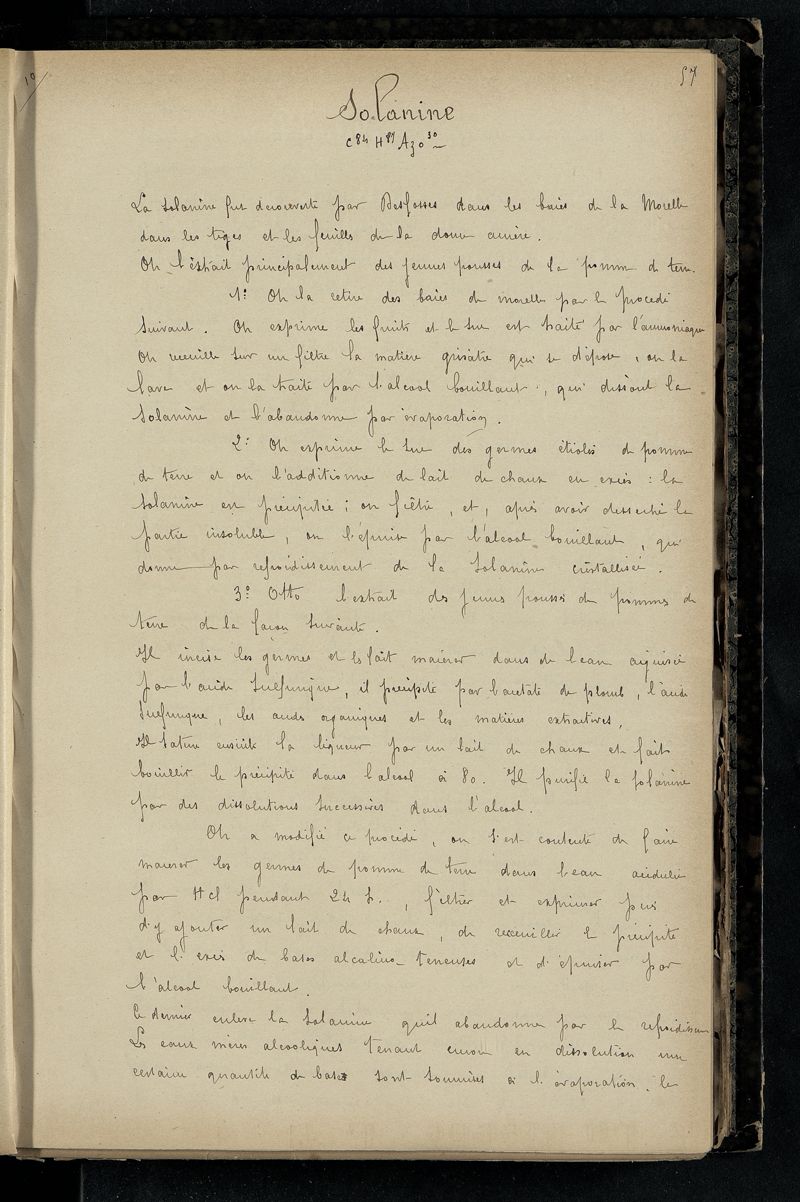 19
57
Solanine
C⁸⁴ H⁸⁹ Az O³⁰
La solanine fut découverte par Desfosses dans les baies de la Morelle
dans les tiges et les feuilles de la douce amère.
On l'extrait principalement des jeunes pousses de la pomme de terre.
1º On la retire des baies de morelle par le procédé
suivant. On exprime les fruits et le suc est traité par l'ammoniaque
On recueille sur un filtre la matière grisâtre qui se dépose, on la
lave et on la traite par l'alcool bouillant, qui dissout la
Solanine et l'abandonne par évaporation.
2º On exprime le suc des germes étiolés de pomme
de terre et on l'additionne de lait de chaux en excès : la
solanine est précipitée ; on filtre, et, après avoir desséché la
partie insoluble, on l'épuise par l'alcool bouillant, qui
donne par refroidissement de la solanine cristallisée.
3º Otto l'extrait des jeunes pousses de pommes de
terre de la façon suivante.
Il incise les germes et les fait macérer dans de l'eau aiguisée
par l'acide sulfurique, il précipite par l'acétate de plomb, l'acide
sulfurique, les acides organiques et les matières extractives,
Il sature ensuite la liqueur par un lait de chaux et fait
bouillir le précipité dans l'alcool à 80. Il purifie la solanine
par des dissolutions successives dans l'alcool.
On a modifié ce procédé, on s'est contenté de faire
macérer les germes de pomme de terre dans l'eau acidulée
par Hcl pendant 24 h., filtrer et exprimer puis
d'y ajouter un lait de chaux, de recueillir le précipité
et l'excès de bases alcalino-terreuses et d'épuiser par
l'alcool bouillant.
Ce dernier enlève la solanine qu'il abandonne par le refroidissem
Les eaux mères alcooliques tenant encore en dissolution une
certaine quantité de bases sont soumises à l'évaporation, le